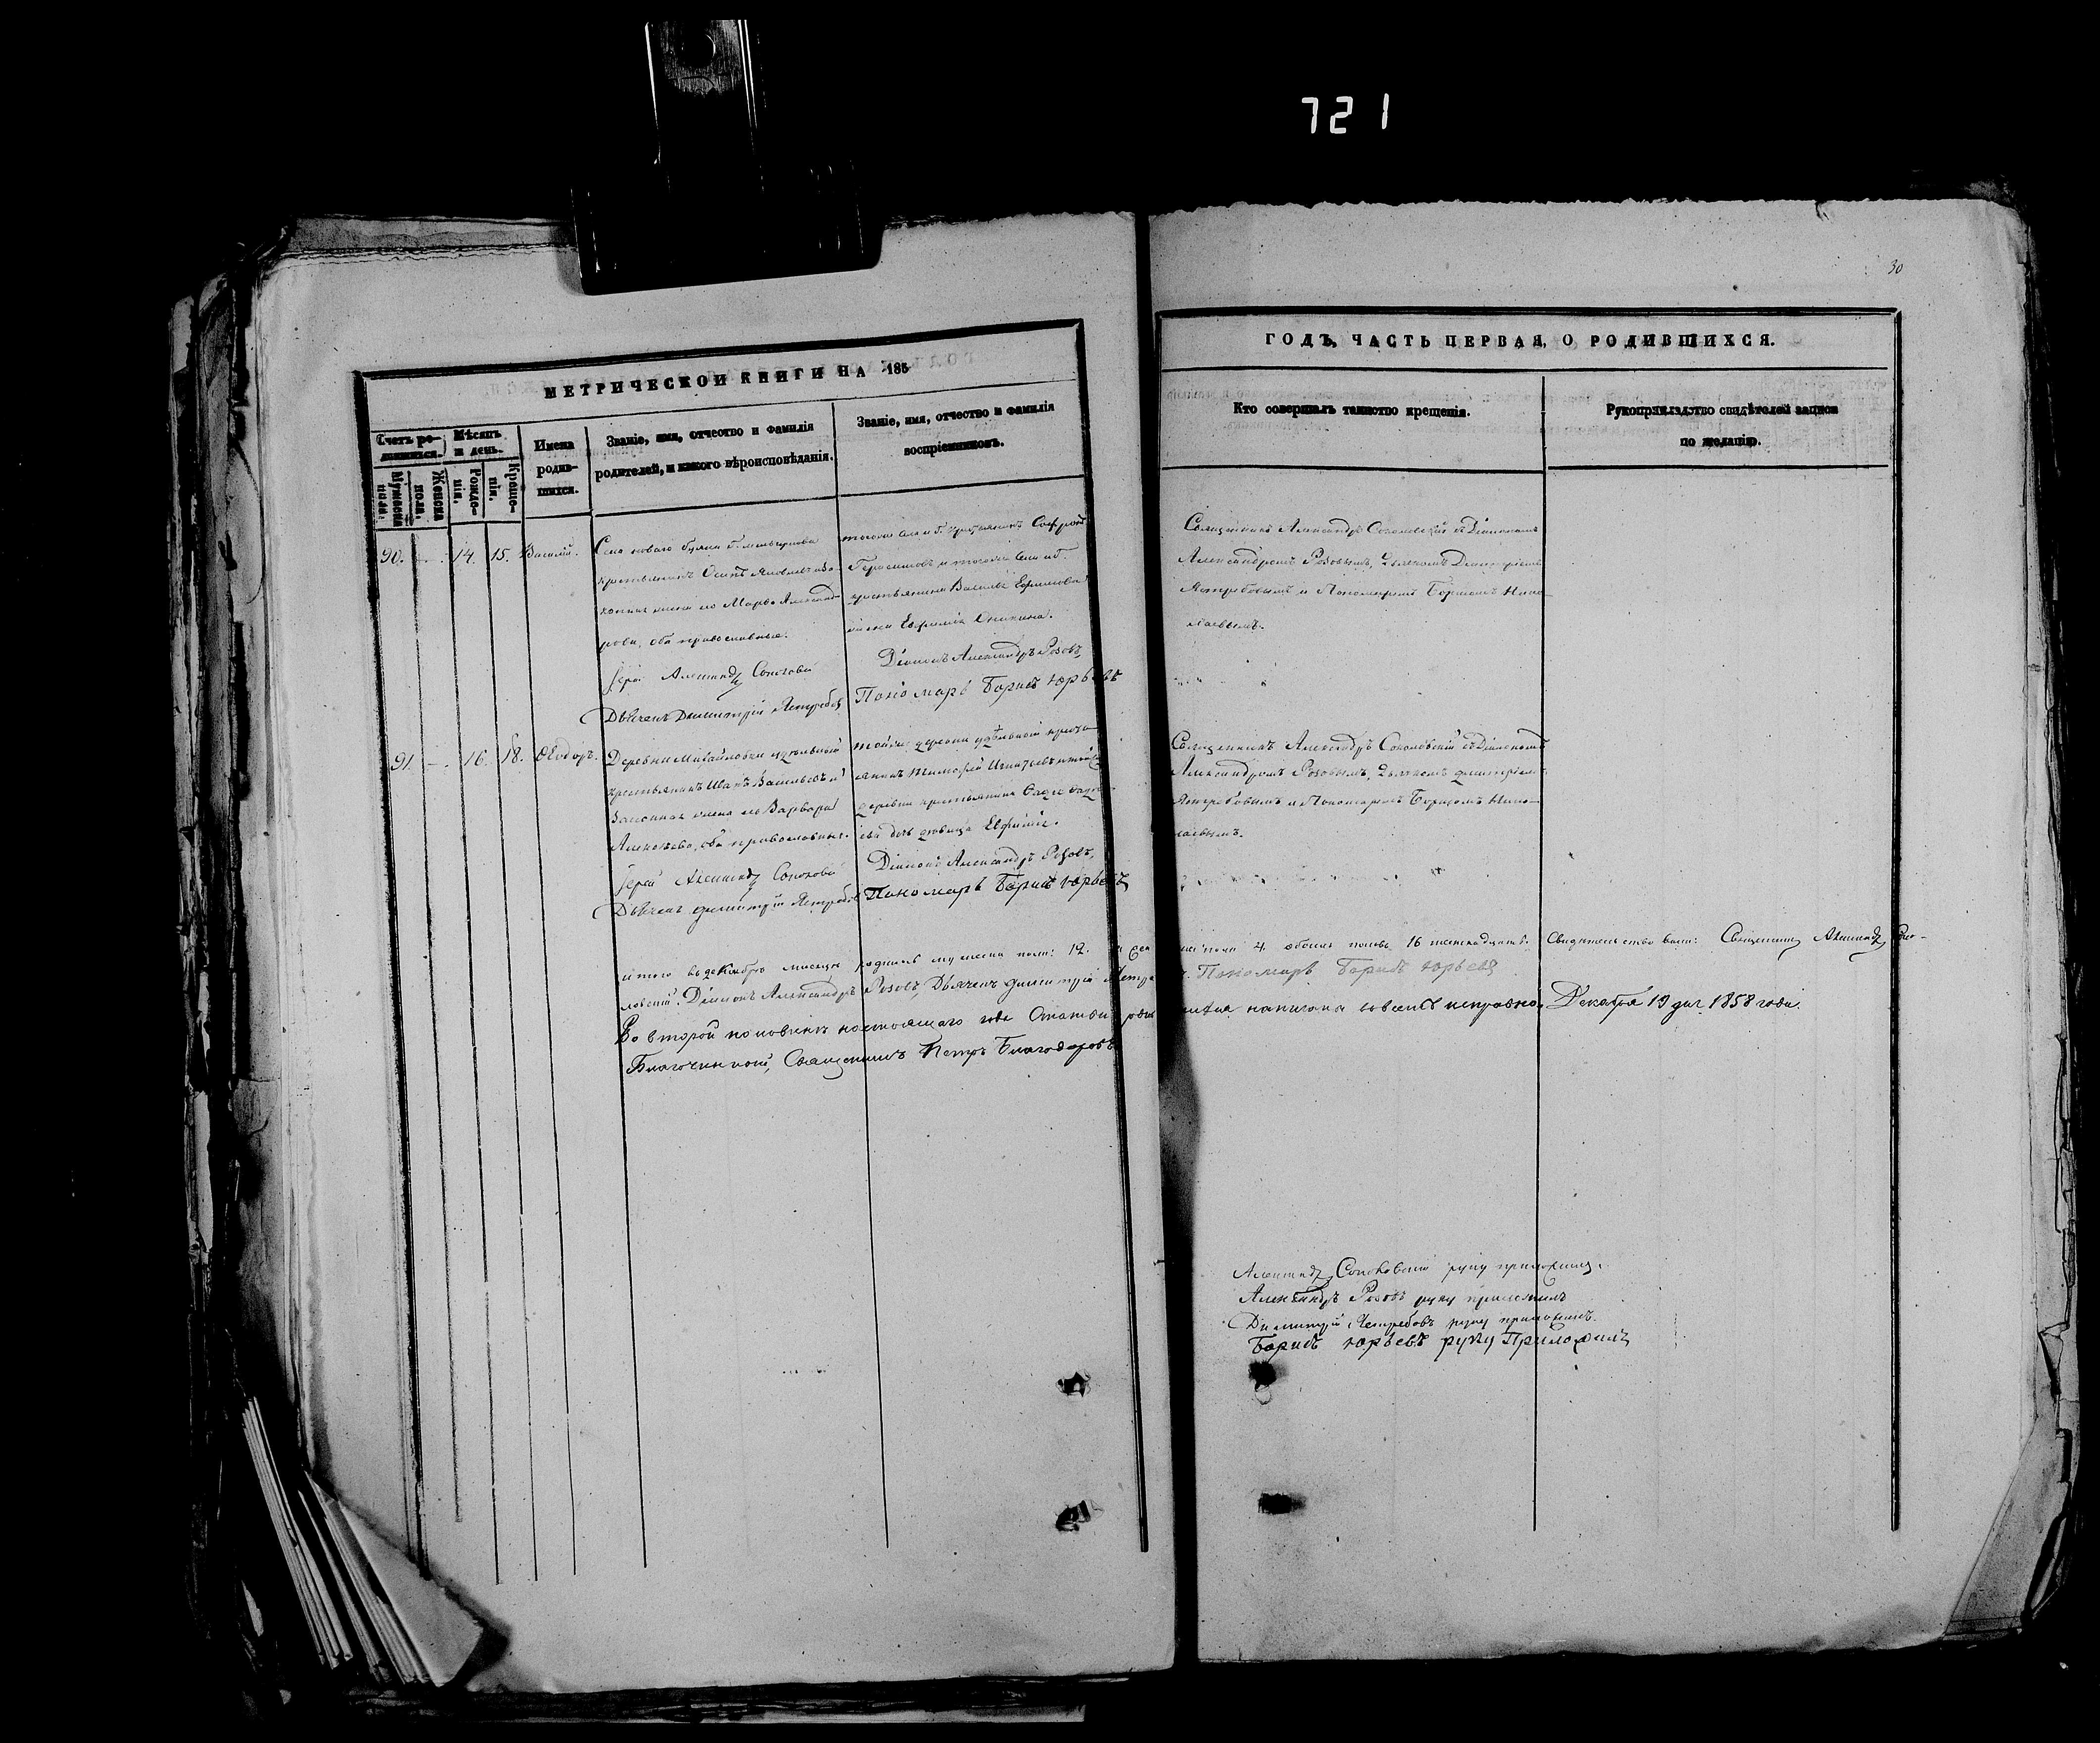 721
30
МЕТРИЧЕСКОЙ КНИГИ НА 185
ГОДЪ, ЧАСТЬ ПЕРВАЯ, О РОДИВШИХСЯ.
Счетъ ро-
дившихся.
Мужеска
пола.
Женска
пола.
Мѣсяцъ
и день.
Рожде-
нія.
Креще-
нія.
Имена
родив-
шихся.
Званіе, имя, отчество и фамилія
родителей, и какого вѣроисповѣданія.
Званіе, имя, отчество и фамилія
воспріемниковъ.
Кто совершалъ таинство крещенія.
Рукоприкладство свидѣтелей записи
по желанію.
90. 14. 15. Василій.
Села новаго
крестьянинъ Осипъ Яковлевъ и за-
конная жена его Марѳа Александ-
рова, оба православные.
Іерей Александръ
Дьячекъ Димитрій Ястребовъ
тогоже села крестьянинъ
Герасимовъ и тогоже села
крестьянина Василья Ефимова
Діаконъ Александръ Розовъ,
Пономарь Борисъ Юрьевъ
Священникъ Александръ Соколовскій съ Діакономъ
Александромъ Розовымъ, Дьячкомъ Димитріемъ
Ястребовымъ и Пономаремъ Борисомъ Нико-
лаевымъ.
91. 16. 18. Ѳеодоръ.
Деревни Михайловки удѣльный
крестьянинъ Иванъ Васильевъ и
законная жена его Варвара
Алексѣева, оба православные.
Іерей Александръ
Дьячекъ Димитрій Ястребовъ
тойже деревни удѣльный кресть-
янинъ Тимофей Игнатьевъ и тойже
деревни крестьянина
дочь девица Евфимія.
Діаконъ Александръ Розовъ,
Пономарь Борисъ Юрьевъ
Священникъ Александръ Соколовскій съ Діакономъ
Александромъ Розовымъ, Дьячкомъ Димитріемъ
Ястребовымъ и Пономаремъ Борисомъ Нико-
лаевымъ.
итого въ декабрѣ мѣсяцѣ родилось мужеска пола: 12. пола 4. обоего пола 16 шестнадцать. Священникъ Александръ Соко-
ловскій. Діаконъ Александръ Розовъ, Дьячекъ Димитрій Пономарь Борисъ Юрьевъ
Во второй половинѣ настоящаго года написана исправно. Декабря 19 дня 1858 года.
Благочинный, Священникъ Петръ
Александръ Соколовскій руку приложилъ.
Александръ Розовъ руку приложилъ
Димитрій Ястребовъ руку приложилъ.
Борисъ Юрьевъ руку Приложилъ